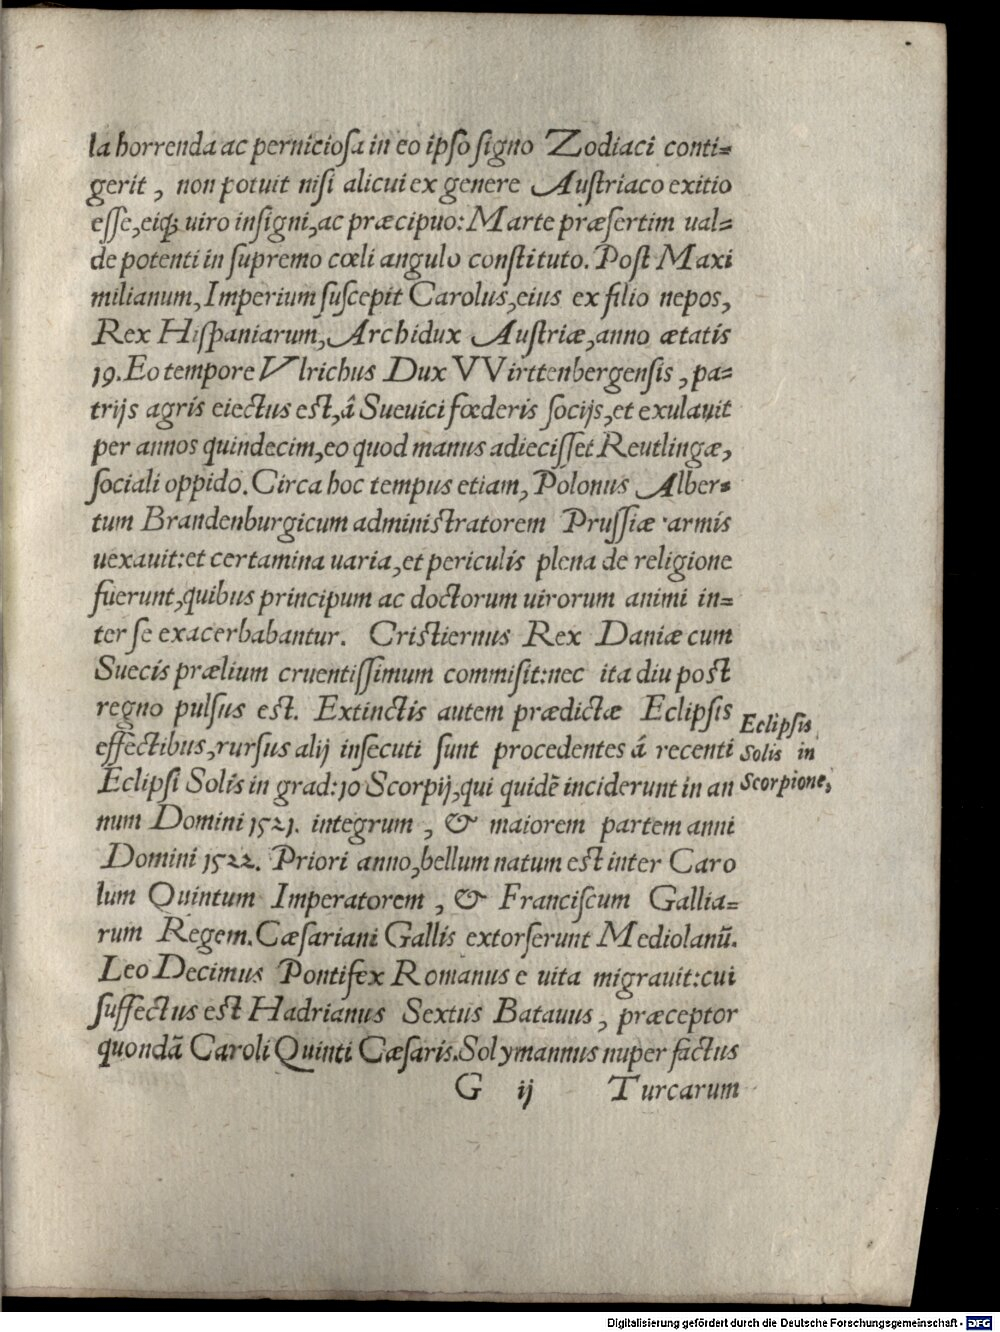 la horrenda ac perniciosa in eo ipso signo Zodiaci conti=
gerit, non potuit nisi alicui ex genere Austriaco exitio
esse, eiq; uiro insigni, ac præcipuo: Marte præsertim ual=
de potenti in supremo cœli angulo constituto. Post Maxi
milianum, Imperium suscepit Carolus, eius ex filio nepos,
Rex Hispaniarum, Archidux Austriæ, anno ætatis
19. Eo tempore Vlrichus Dux VVirttenbergensis, pa=
trijs agris eiectus est, â Sueuici fœderis socijs, et exulauit
per annos quindecim, eo quod manus adiecisset Reutlingæ,
sociali oppido. Circa hoc tempus etiam, Polonus Alber=
tum Brandenburgicum administratorem Prussiæ armis
uexauit: et certamina uaria, et periculis plena de religione
fuerunt, quibus principum ac doctorum uirorum animi in=
ter se exacerbabantur. Cristiernus Rex Daniæ cum
Suecis prælium cruentissimum commisit: nec ita diu post
regno pulsus est. Extinctis autem prædictæ Eclipsis
effectibus, rursus alij insecuti sunt procedentes á recenti
Eclipsi Solis in grad: 10 Scorpij, qui quidē inciderunt in an
num Domini 1521. integrum, & maiorem partem anni
Domini 1522. Priori anno, bellum natum est inter Caro
lum Quintum Imperatorem, & Franciscum Gallia=
rum Regem. Cæsariani Gallis extorserunt Mediolanū.
Leo Decimus Pontifex Romanus e uita migrauit: cui
suffectus est Hadrianus Sextus Batauus, præceptor
quondā Caroli Quinti Cæsaris. Solymannus nuper factus
G ij Turcarum
Eclipsis
Solis in
Scorpione,
Digitalisierung gefördert durch die Deutsche Forschungsgemeinschaft - DFG